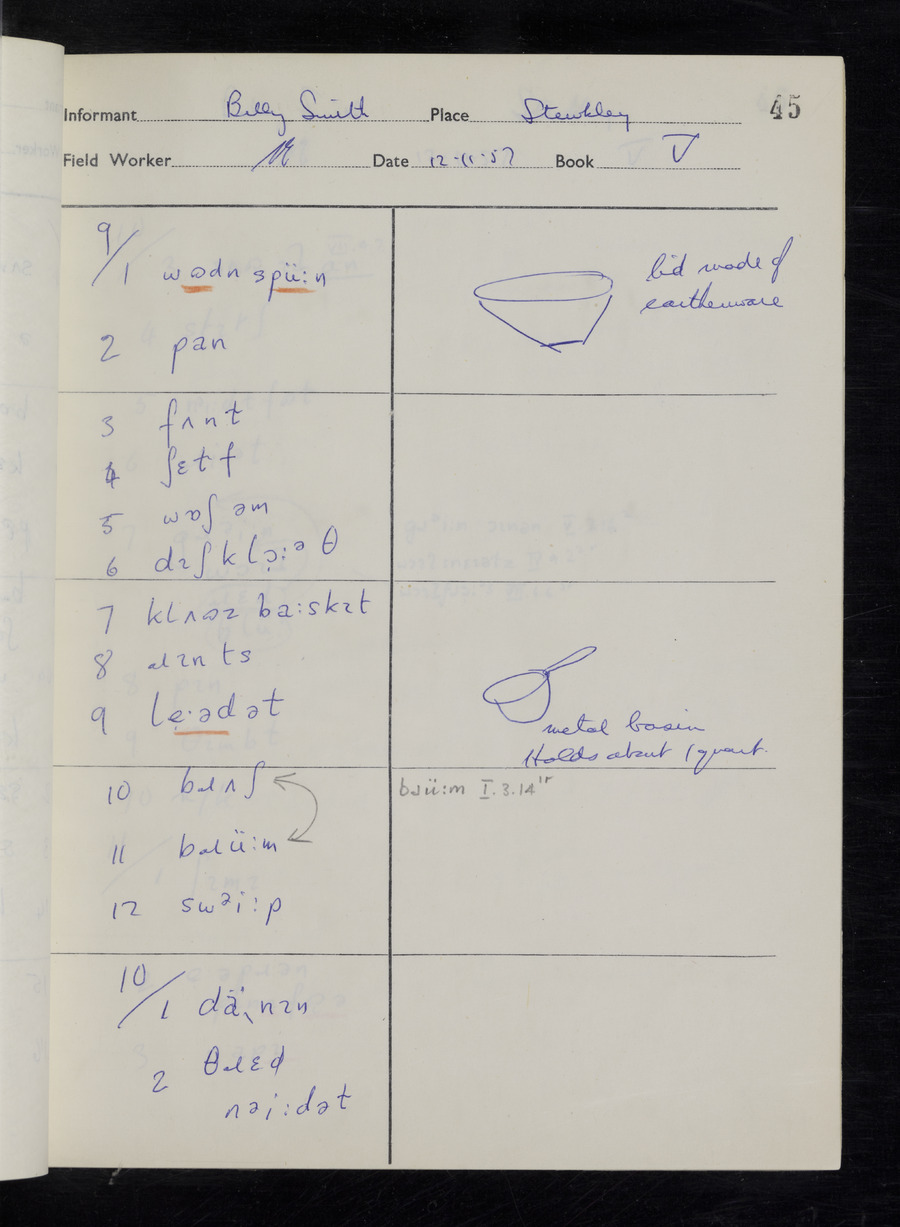 Informant Billy Smith Place Stewkley 45
Field Worker Date 12.11.57 Book V
9/1 wədn spü:n
lid made of
earthenware
2 pan
3 fʌnt
4 ʃɛtf
5 wɒʃ əm
6 dɪʃklɔ̣:ᵊθ
7 klʌəz ba:skɪt
8 ɹɪnts
9 lẹ·ədət
metal basin
Holds about 1 quart.
10 bɹʌʃ
bɹü:m I.3.14
11 bɹü:m
12 swᵊi:p
10/1 dä:nɪn
2 θɹɛd
nəi:dət